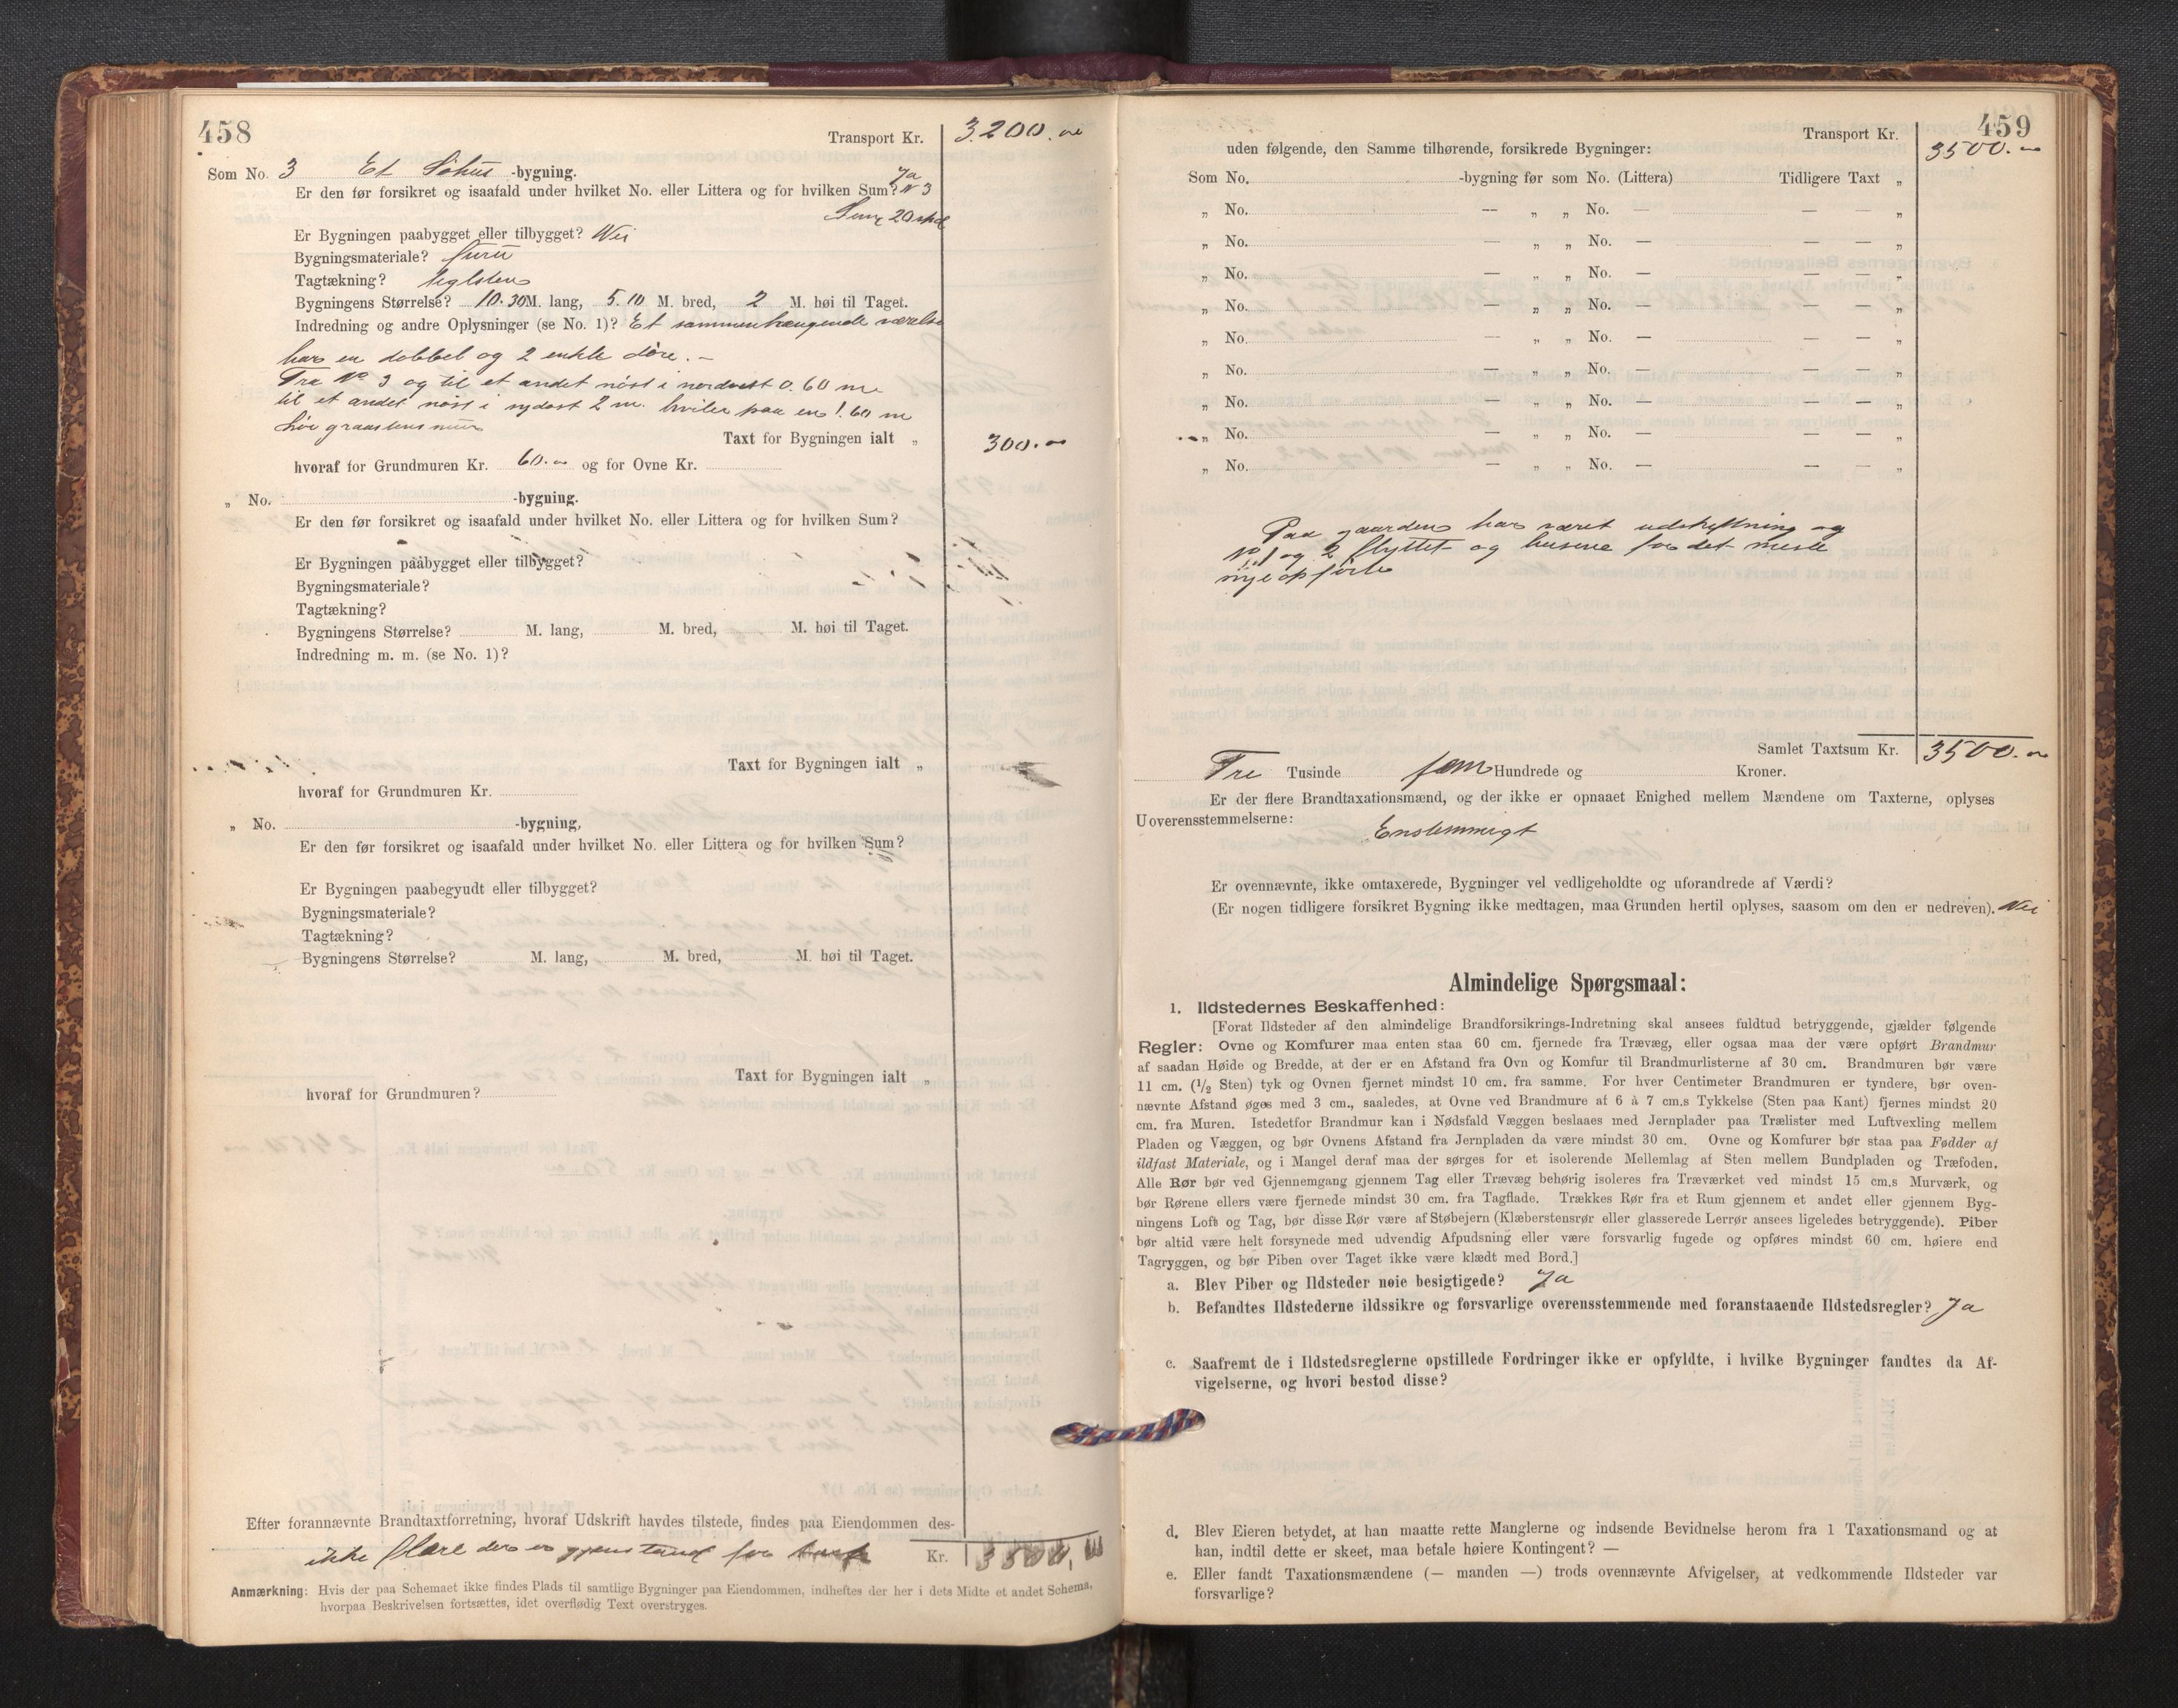 458
Transport Kr. 3200.
Som No. 3 Et Söhus -bygning.
Er den før forsikret og isaafald under hvilket No. eller Littera og for hvilken Sum? Ja N 3
Sum 20 spd
Er Bygningen paabygget eller tilbygget? Nei
Bygningsmateriale? furu
Tagtækning? teglsten
Bygningens Størrelse? 10.30 M. lang, 5.10 M. bred, 2 M. høi til Taget.
Indredning og andre Oplysninger (se No. 1)? Et sammenhængende værelse
har en dobbel og 2 enkle döre. -
Fra No 3 og til et andet nöst i nordvest 0.60 m
til et andet nöst i sydost 2 m. hviler paa en 1.60 m
höi graastensmur
Taxt for Bygningen ialt „ 300.
hvoraf for Grundmuren Kr. 60. og for Ovne Kr.
„ No. -bygning.
Er den før forsikret og isaafald under hvilket No. eller Littera og for hvilken Sum?
Er Bygningen paabygget eller tilbygget?
Bygningsmateriale?
Tagtækning?
Bygningens Størrelse? M. lang, M. bred, M. høi til Taget.
Indredning m. m. (se No. 1)?
Taxt for Bygningen ialt „
hvoraf for Grundmuren Kr.
„ No. -bygning,
Er den før forsikret og isaafald under hvilket No. eller Littera og for hvilken Sum?
Er Bygningen paabegyudt eller tilbygget?
Bygningsmateriale?
Tagtækning?
Bygningens Størrelse? M. lang, M. bred, M. høi til Taget.
Taxt for Bygningen ialt „
hvoraf for Grundmuren?
Efter forannævnte Brandtaxtforretning, hvoraf Udskrift havdes tilstede, findes paa Eiendommen des-
ikke flere der er gjenstand for Kr. 3500,
Anmærkning: Hvis der paa Schemaet ikke findes Plads til samtlige Bygninger paa Eiendommen, indheftes der her i dets Midte et andet Schema,
hvorpaa Beskrivelsen fortsættes, idet overflødig Text overstryges.
459
Transport Kr. 3500.
uden følgende, den Samme tilhørende, forsikrede Bygninger:
Som No. -bygning før som No. (Littera) Tidligere Taxt „
„ No. — „ „ No. — — — „
„ No. — „ „ No. — — — „
„ No. — „ „ No. — — — „
„ No. — „ „ No. — — — „
„ No. — „ „ No. — — — „
„ No. — „ „ No. — — — „
„ No. — „ „ No. — — — „
„ No. — „ „ No. — — — „
„ No. — „ „ No. — — — „
Paa gaarden har været udskiftning og
No 1 og 2 flyttet og husene for det meste
nye opförte
Samlet Taxtsum Kr. 3500.
Tre Tusinde fem Hundrede og Kroner.
Er der flere Brandtaxationsmænd, og der ikke er opnaaet Enighed mellem Mændene om Taxterne, oplyses
Uoverensstemmelserne: Enstemmigt
Er ovennævnte, ikke omtaxerede, Bygninger vel vedligeholdte og uforandrede af Værdi?
(Er nogen tidligere forsikret Bygning ikke medtagen, maa Grunden hertil oplyses, saasom om den er nedreven). Nei
Almindelige Spørgsmaal:
1. Ildstedernes Beskaffenhed:
[Forat Ildsteder af den almindelige Brandforsikrings-Indretning skal ansees fuldtud betryggende, gjælder følgende
Regler: Ovne og Komfurer maa enten staa 60 cm. fjernede fra Trævæg, eller ogsaa maa der være opført Brandmur
af saadan Høide og Bredde, at der er en Afstand fra Ovn og Komfur til Brandmurlisterne af 30 cm. Brandmuren bør være
11 cm. (1/2 Sten) tyk og Ovnen fjernet mindst 10 cm. fra samme. For hver Centimeter Brandmuren er tyndere, bør oven-
nævnte Afstand øges med 3 cm., saaledes, at Ovne ved Brandmure af 6 à 7 cm.s Tykkelse (Sten paa Kant) fjernes mindst 20
cm. fra Muren. Istedetfor Brandmur kan i Nødsfald Væggen beslaaes med Jernplader paa Trælister med Luftvexling mellem
Pladen og Væggen, og bør Ovnens Afstand fra Jernpladen da være mindst 30 cm. Ovne og Komfurer bør staa paa Fødder af
ildfast Materiale, og i Mangel deraf maa der sørges for et isolerende Mellemlag af Sten mellem Bundpladen og Træfoden.
Alle Rør bør ved Gjennemgang gjennem Tag eller Trævæg behørig isoleres fra Træværket ved mindst 15 cm.s Murværk, og
bør Rørene ellers være fjernede mindst 30 cm. fra Tagflade. Trækkes Rør fra et Rum gjennem et andet eller gjennem Byg-
ningens Loft og Tag, bør disse Rør være af Støbejern (Klæberstensrør eller glasserede Lerrør ansees ligeledes betryggende). Piber
bør altid være helt forsynede med udvendig Afpudsning eller være forsvarlig fugede og opføres mindst 60 cm. høiere end
Tagryggen, og bør Piben over Taget ikke være klædt med Bord.]
a. Blev Piber og Ildsteder nøie besigtigede? Ja
b. Befandtes Ildstederne ildssikre og forsvarlige overensstemmende med foranstaaende Ildstedsregler? Ja
c. Saafremt de i Ildstedsreglerne opstillede Fordringer ikke er opfyldte, i hvilke Bygninger fandtes da Af-
vigelserne, og hvori bestod disse?
d. Blev Eieren betydet, at han maatte rette Manglerne og indsende Bevidnelse herom fra 1 Taxationsmand og at
han, indtil dette er skeet, maa betale høiere Kontingent? —
e. Eller fandt Taxationsmændene (— manden —) trods ovennævnte Afvigelser, at vedkommende Ildsteder var
forsvarlige?